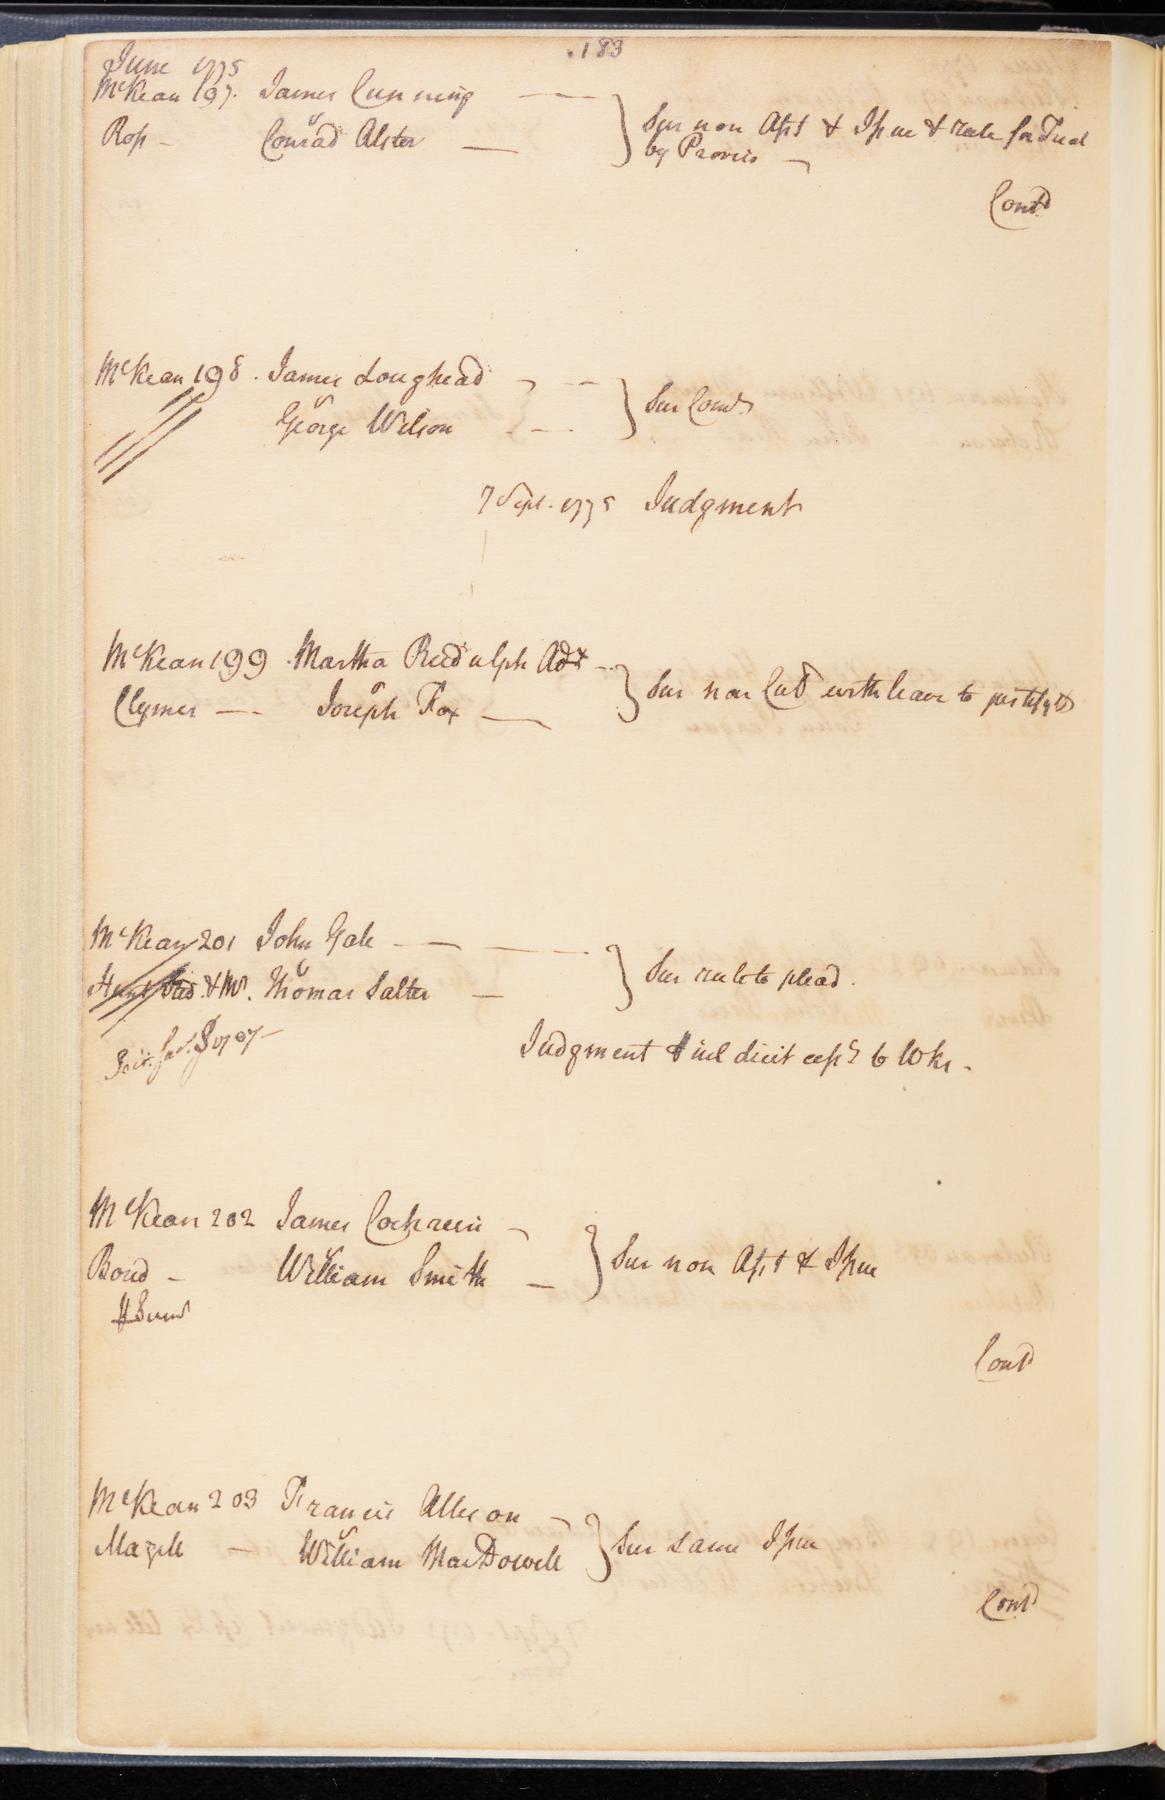 183
June 1775
McKean 197. James Cunning
Ross v Conrad Alster
Sur non Asst & Issue & rule for Trial
by Proviso
Contd
McKean 198. James Loughead
v George Wilson
Sur Cond
7 Sept. 1775 Judgment
McKean 199 Martha Reedulph Adx
Clymer v Joseph Fox
Sur non Cul with leave to justify &
McKean 201 John Gale
v Thomas Salter
Sur rule to plead.
Judgment nil dicit 6 Wks.
McKean 202 James Cochrein
Bond v William Smith
Sur non Asst & Issue
Contd
McKean 203 Francis Allison
v William MacDowell
Sur same Issue
Contd